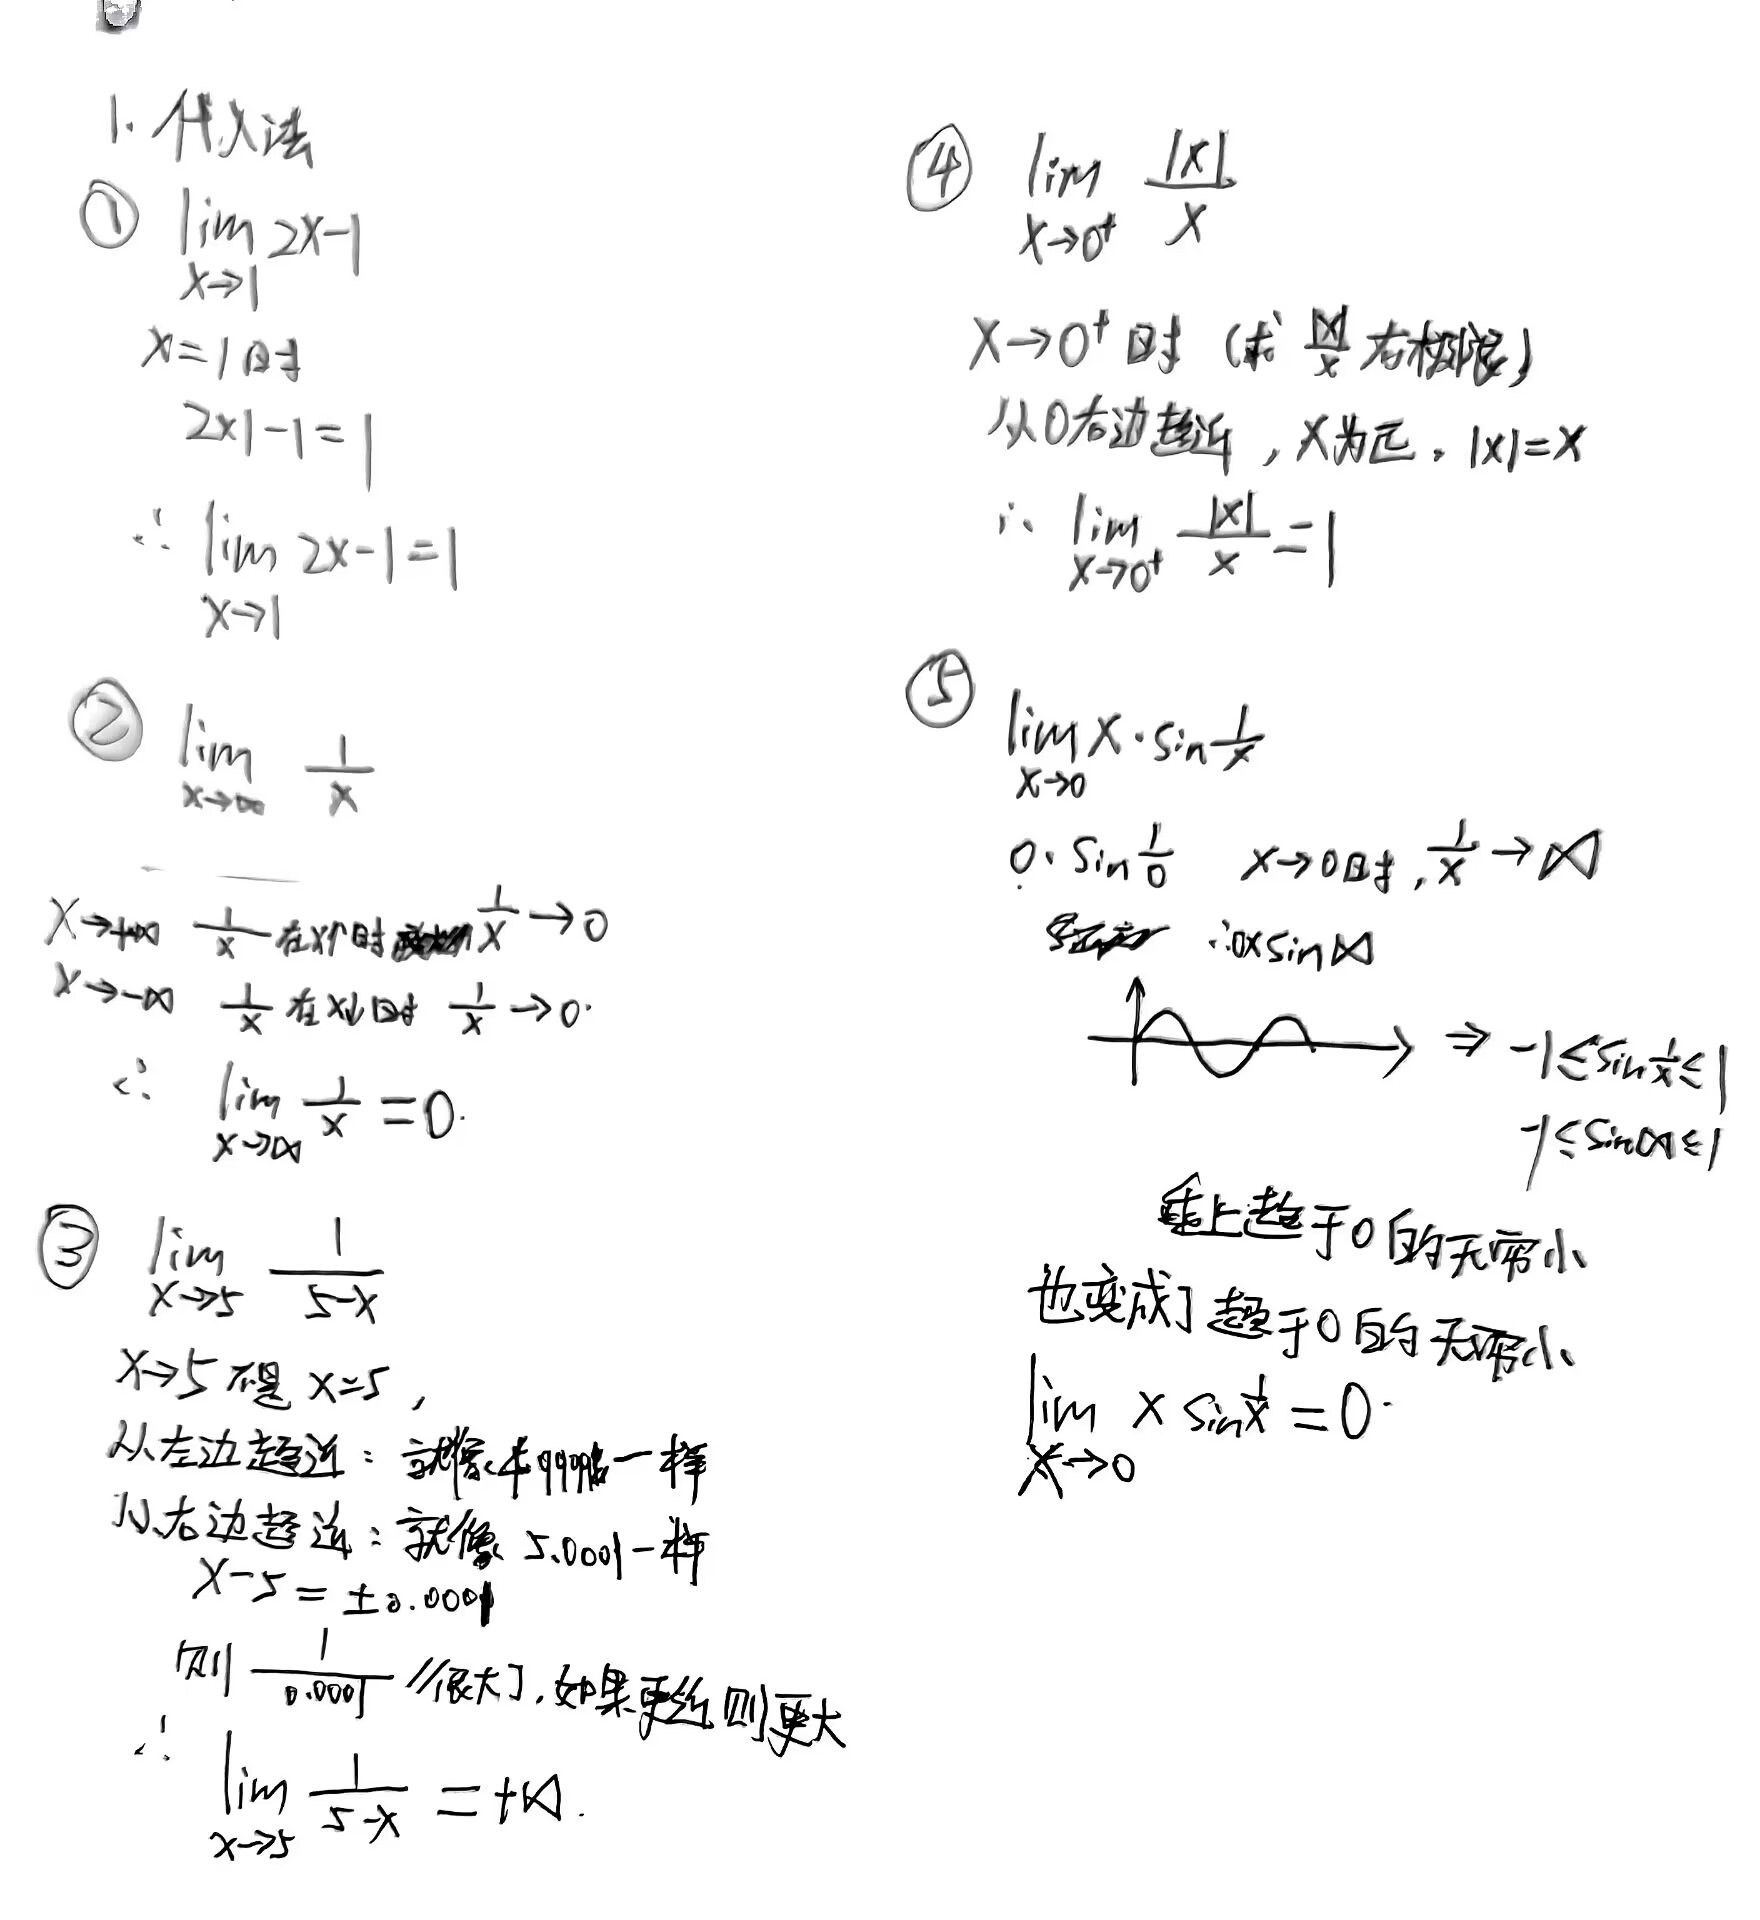 1. 代入法
① lim 2x-1
x→1
x=1时
2×1-1=1
∴ lim 2x-1=1
x→1
② lim 1/x
x→∞
x→+∞ 1/x 在x↑时 1/x→0
x→-∞ 1/x 在x↓时 1/x→0.
∴ lim 1/x =0.
x→∞
③ lim 1/(5-x)
x→5
x→5 不是 x=5,
从左边趋近: 就像 4.9999 一样
从右边趋近: 就像 5.0001一样
x-5=±0.0001
则 1/0.0001 //很大了, 如果更近则更大
∴ lim 1/(5-x) = +∞.
x→5
④ lim |x|/x
x→0⁺
x→0⁺时 (求 |x|/x 右极限)
从0右边趋近, x为正, |x|=x
∴ lim |x|/x =1
x→0⁺
⑤
lim x·sin 1/x
x→0
0·sin 1/0 x→0时, 1/x→∞
∴0×sin∞
⇒ -1≤sin 1/x≤1
-1≤sin∞≤1
乘上趋于0的无穷小
也变成了趋于0的无穷小
lim x sin 1/x =0.
x→0